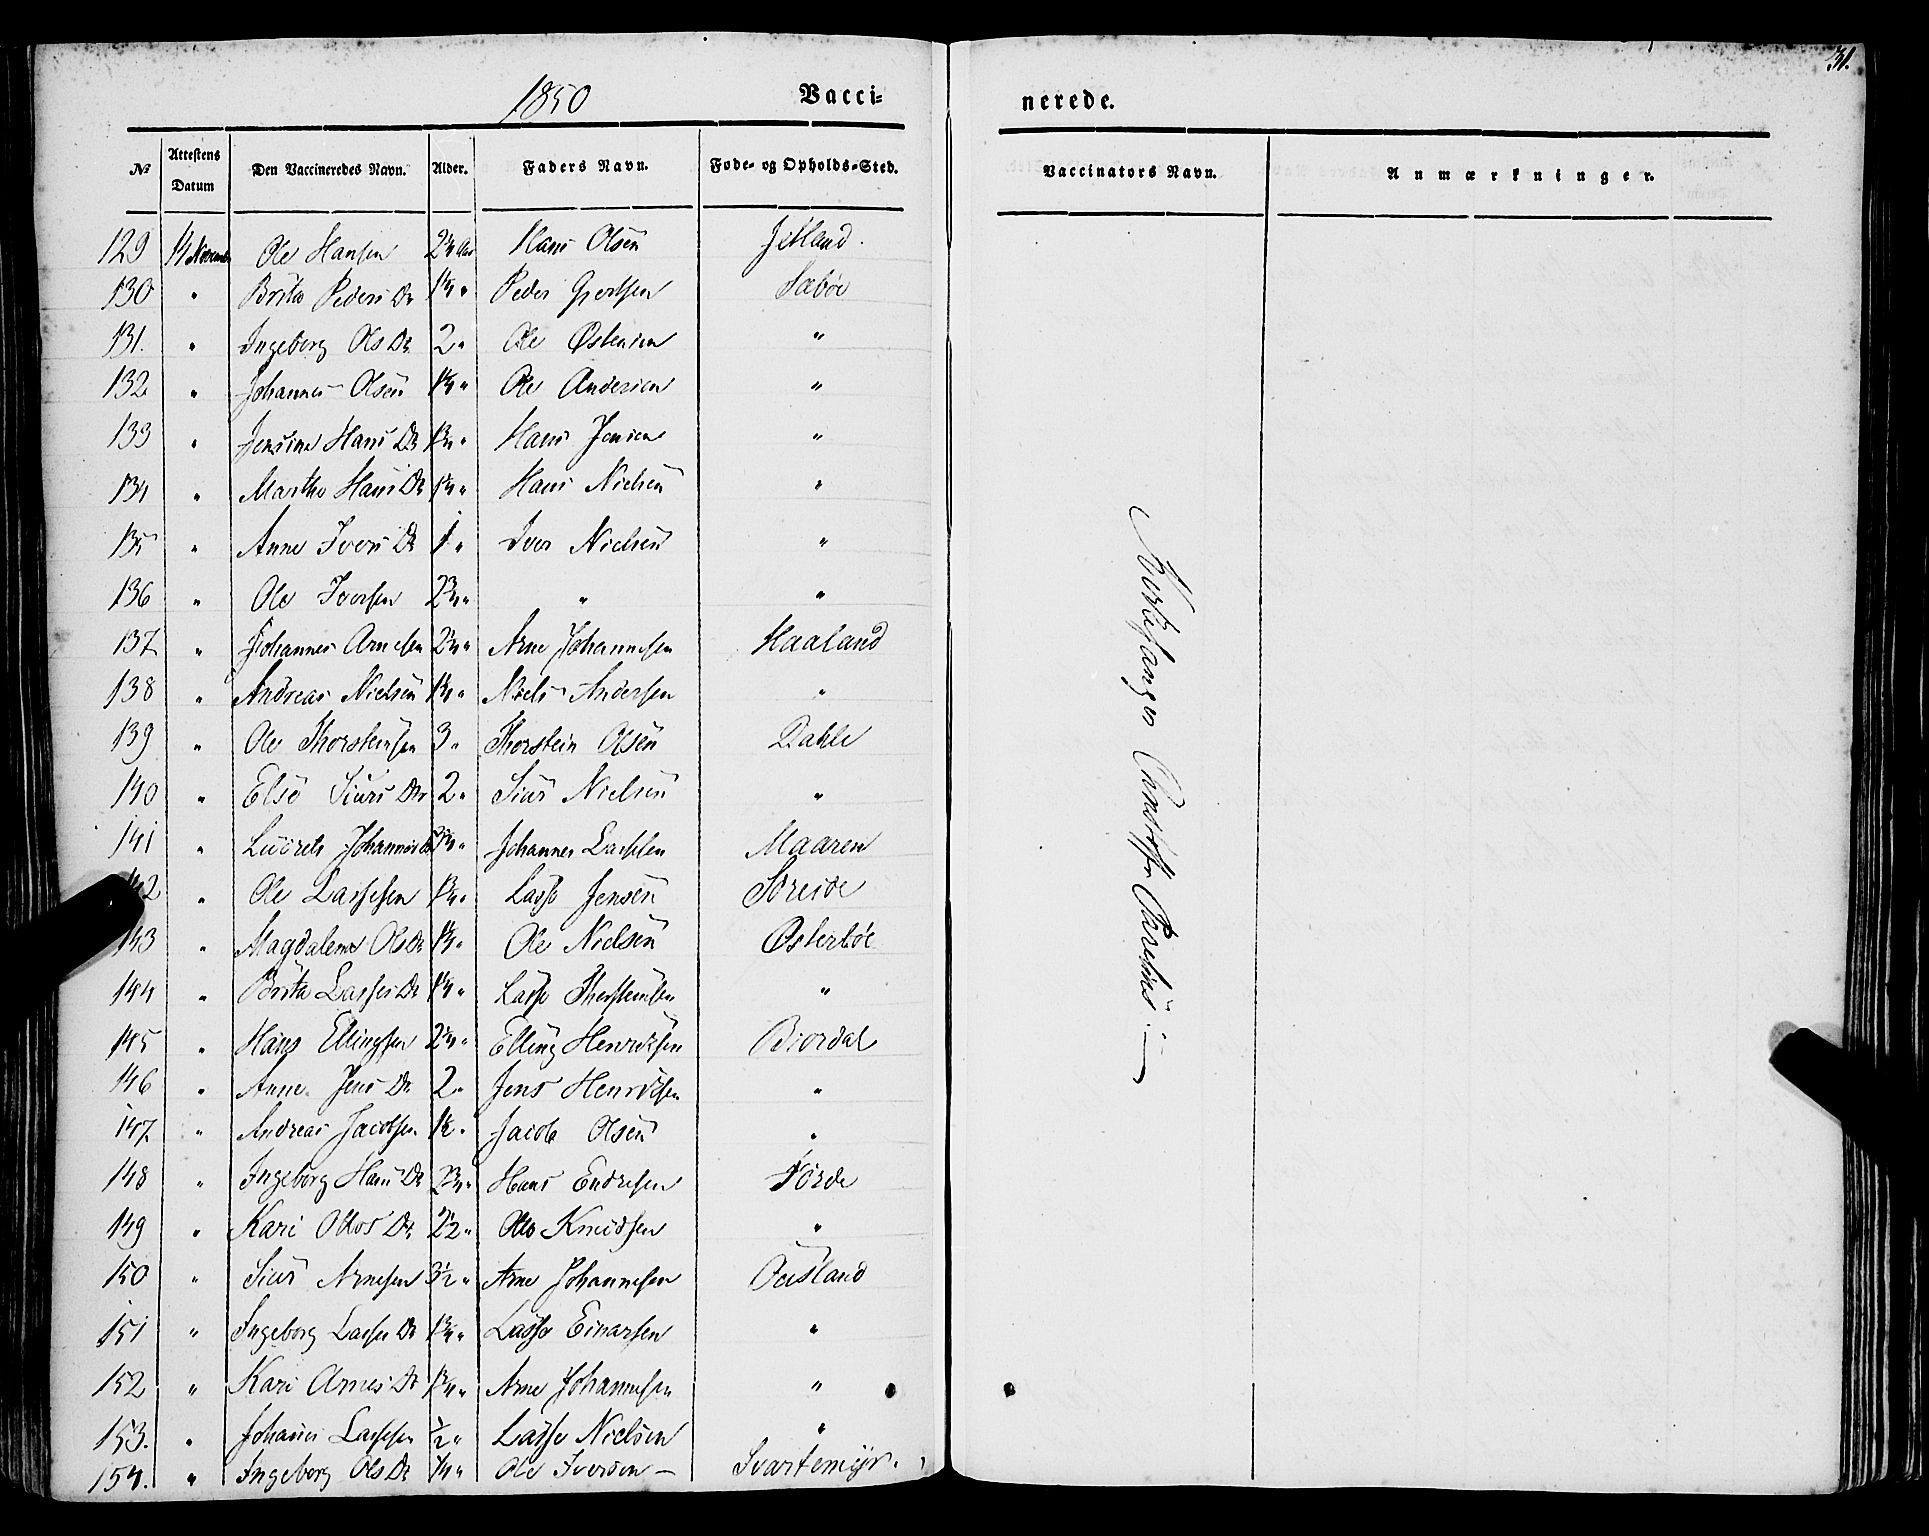 31.
1850 Vacci= nerede.
№ Attestens Datum Den Vaccineredes Navn. Alder. Faders Navn. Føde- og Opholds-Sted. Vaccinators Navn. Anmærkninger.
129 14 Novemb Ole Hansen 2¼ Aar Hans Olsen Jetland.
130 " Brita Peders Dr " Peder Sæbøe
131. " Ingeborg Ols Dr 2 " Ole Østensen "
132 " Johannes Olsen " Ole Andersen "
133 " Jensine Hans Dr 1¾ " Hans Jensen "
134 " Marthe Hans Dr " Hans Nielsen "
135 " Anne Ivers Dr 1 " Iver Nielsen "
136 " Ole Iversen 2¾ " " "
137 " Johannes Arnesen 2¼ " Arne Johannesen Haaland
138 " Andreas Nielsen " Niels Andersen "
139 " Ole Thorsteinsen 3 " Thorstein Olsen Dahle
140 " Else Siurs Dtr 2 " Siur Nielsen "
141 " Johannes " Johannes Lassesen Maaren
142 " Ole Lassesen 1¾ " Lasse Jensen Søreide
143 " Magdalena Ols Dr " Ole Nielsen Østerbøe
144 " Brita Lasses Dr " Lasse Thorsteinsen "
145 " Hans Ellingsen 2¼ " Elling Henriksen Biordal
146 " Anne Jens Dr 2 " Jens Henriksen "
147 " Andreas Jacobsen 1½ " Jacob Olsen "
148 " Ingeborg Hans Dr 2¾ " Hans Endresen Førde
149 " Kari Ottos Dr 2½ " Otto Knudsen "
150 " Siur Arnesen 3½ " Arne Johannesen Ousland
151 " Ingeborg Lasses Dr 1¾ " Lasse Einarsen "
152 " Kari Arnes Dr 1¾ " Arne Johannesen "
153. " Johannes Lassesen ½ " Lasse Nielsen "
154. " Ingeborg Ols Dr " Ole Iversen — Svartemyr.